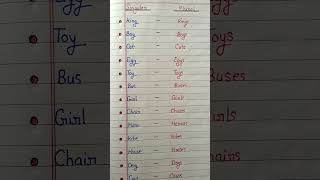 Egg
Toy
Bus
Girl
Chair
Singular Plural
Boy - Boys
Cat - Cats
Egg - Eggs
Toy - Toys
Bus - Buses
Girl - Girls
Chair - Chairs
Kite - Kites
House - Houses
Dog - Dogs
Cow - Cows
oys
Buses
rls
airs